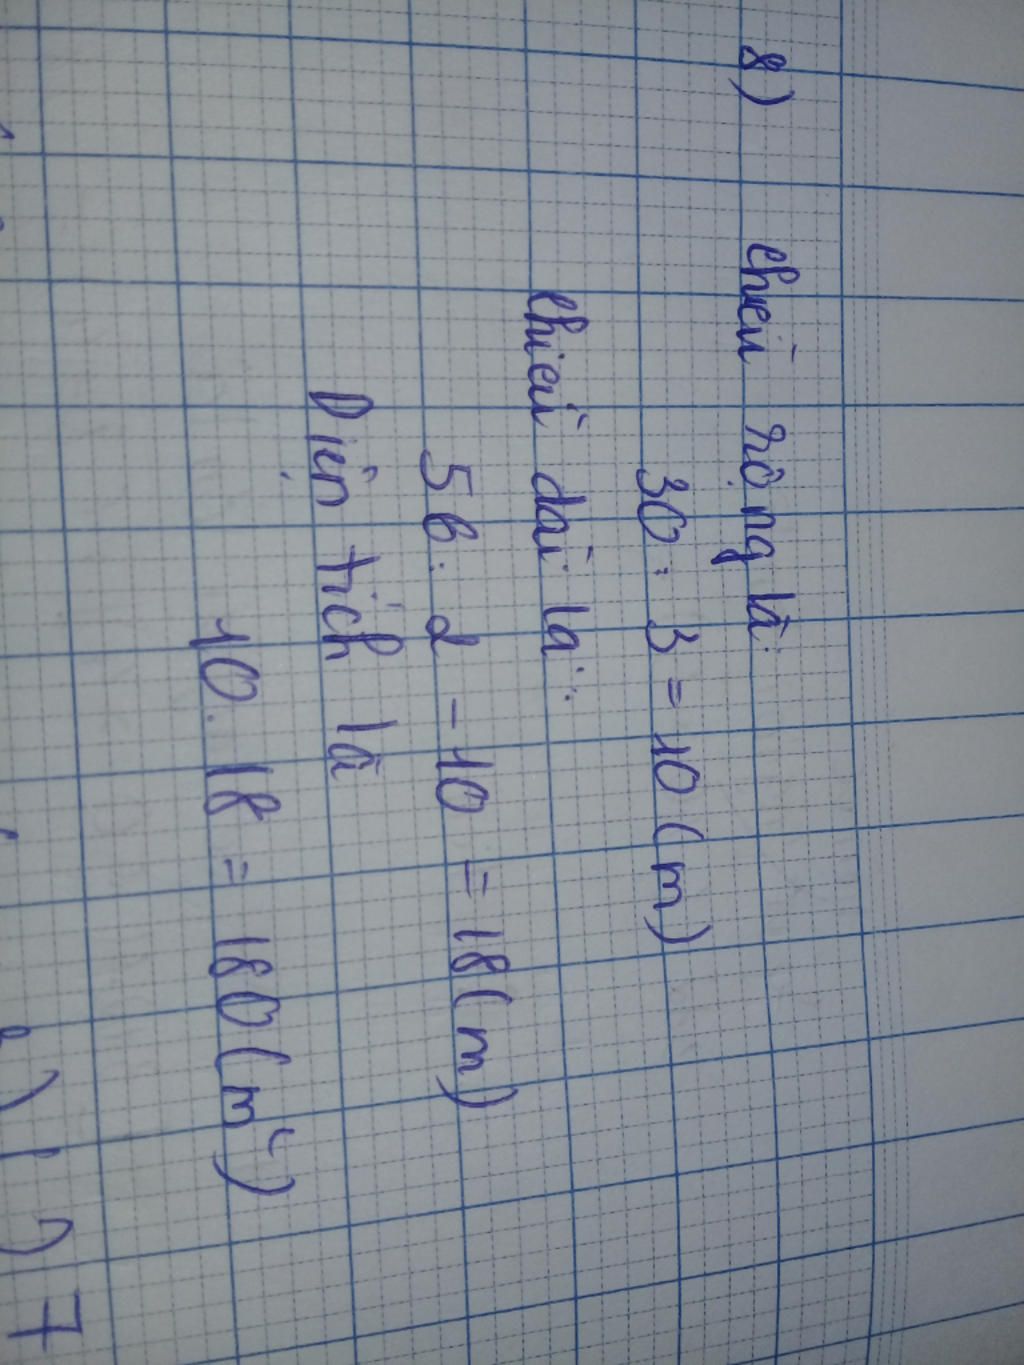 8) chiều rộng là:
30 : 3 = 10 (m)
chiều dài là:
56 : 2 - 10 = 18 (m)
Diện tích là
10 . 18 = 180 (m²)